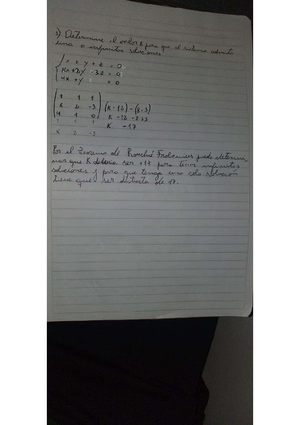 1) Determinar el valor k para que el sistema admita
una o infinitas soluciones
x + y + z = 0
kx + 2y - 3z = 0
4x + y = 0
1 1 1
k 2 -3 (k - 12) - (8 - 3)
4 1 0 k - 12 - 8 + 3
1 1 1 k - 17
k 2 -3
Por el Teorema de Rouché Frobenius puede determinar
que k debería ser 17 para tener infinitas
soluciones y para que tenga una sola solución
tiene que ser distinta de 17.